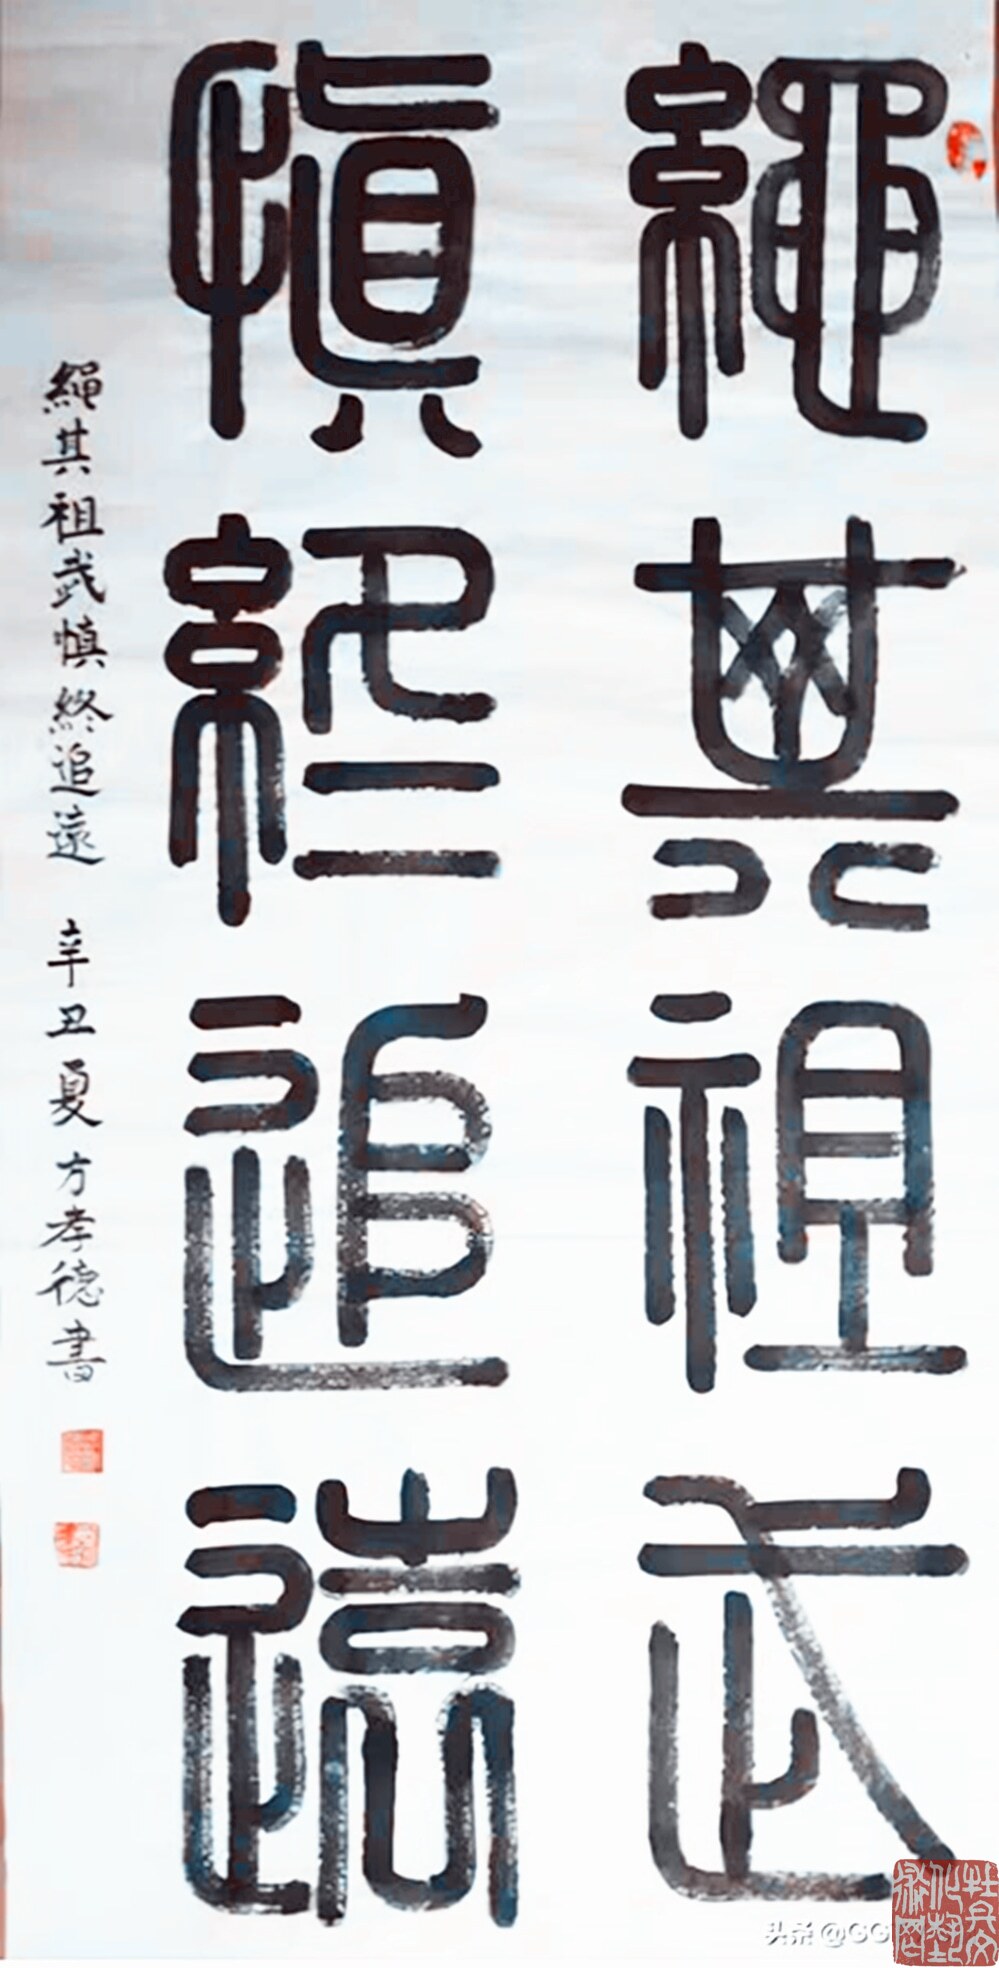 繩其祖武
慎終追遠
繩其祖武慎終追遠 辛丑夏方孝德書
头条 @GG